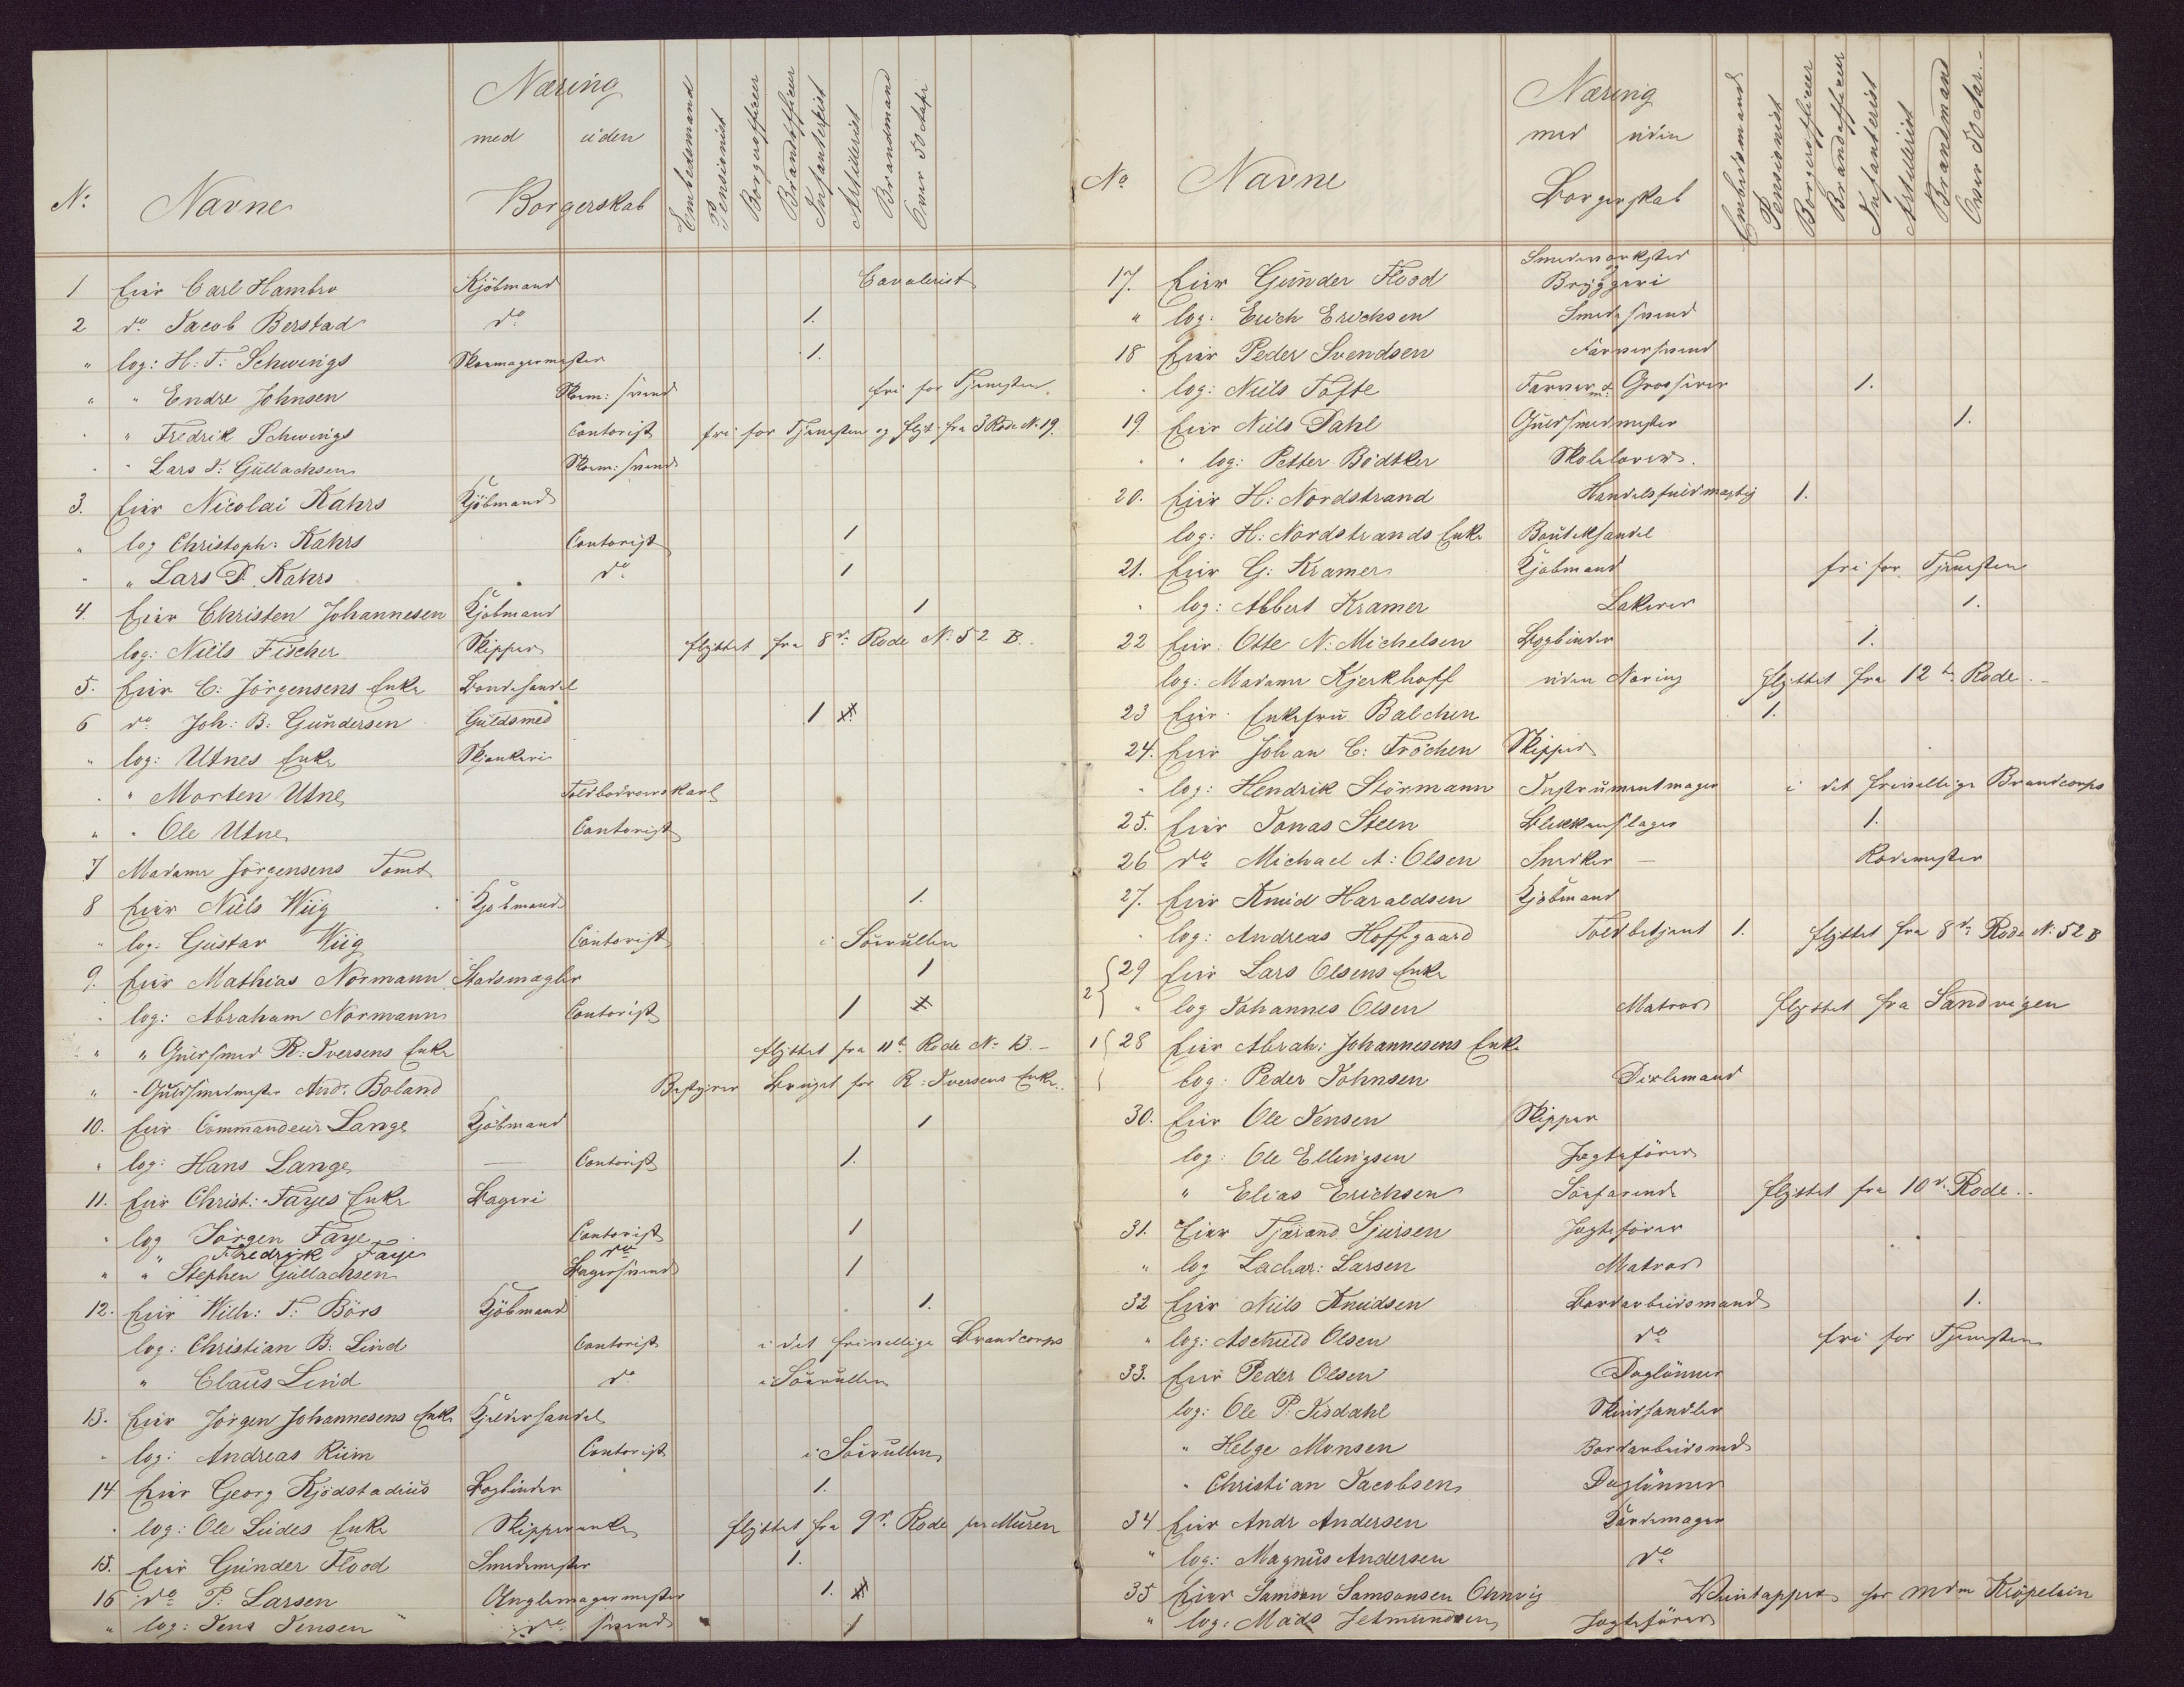 Næring
med uden
Borgerskab
No Navne Embedsmand Pensionist Borgerofficeer Brandofficeer Infanterist Artillerist Brandmand Over 50 Aar
1 Eier Carl Hambro Kjöbmand Cavalerist
2 do Jacob Berstad do 1.
" log: H: T: Schwings Skomagermester 1.
" " Endre Johnsen Skom: svend fri for Tjenesten
" " Fredrik Schwings Contorist fri for Tjenesten og flyt: fra 3 Rode No 19.
" " Lars J: Gullachsen Skom: svend
3. Eier Nicolai Kahrs Kjöbmand
" log Christoph: Kahrs Contorist 1
" " Lars D. Kahrs do 1
4. Eier Christen Johannesen Kjöbmand 1
log: Niels Fischer Skipper flyttet fra 8de Rode No 52 B.
5. Eier C: Jörgensens Enke Bondehandel
6 do Joh: B: Gundersen Guldsmed 1
" log: Utnes Enke Skjenkeri
" " Morten Utne Toldbodroerskarl
" " Ole Utne Contorist
7 Madame Jörgensens Tomt
8 Eier Niels Wiig Kjöbmand 1.
" log: Gustav Wiig Contorist i Söerullen
9. Eier Mathias Normann Stadsmægler 1
" log: Abraham Normann Contorist 1
" " Guldsmed R: Iversens Enke flyttet fra 11te Rode No 13.-
" " Guldsmedmester Andr. Boland Bestyrer Bruget for R: Iversens Enke.
10. Eier Commandeur Lange Kjöbmand 1
" log: Hans Lange — Contorist 1.
11. Eier Christ: Fayes Enke Bageri
" log Jörgen Faye Contorist 1
" Fredrik Faye do
" " Stephen Gullachsen Bagersvend 1
12. Eier Wilh: T: Börs Kjöbmand 1.
log: Christian B: Lind Contorist i det frivillige Brandcorps
" Claus Lind do i Söerullen
13. Eier Jörgen Johannesens Enke Kjelderhandel
" log: Andreas Riim Contorist i Söerullen
14 Eier Georg Kjödstadius Bogbinder 1.
" log: Ole Lüdes Enke Skipperenke flyttet fra 9de Rode paa Muren
15. Eier Gunder Flood Smedmester 1.
16 do P: Larsen Anglemagermester 1.
" log: Jens Jensen do svend 1
Næring
med uden
Borgerskab
No Navne Embedsmand Pensionist Borgerofficeer Brandofficeer Infanterist Artillerist Brandmand Over 50 Aar.-
Smedeværksted
17. Eier Gunder Flood Bryggeri
" log: Erich Erichsen Smedesvend
18 Eier Peder Svendsen Farversvend
" log: Niels Tofte Farver & Grosserer 1.
19. Eier Niels Dahl Guldsmedmester 1.
" " log: Petter Bödtker Skolelærer.
20. Eier H: Nordstrand Handelsfuldmægtig 1.
log: H: Nordstrands Enke Boutikhandel
21. Eier G: Kramer Kjöbmand fri for Tjenesten
" log: Albert Kramer Lakerer 1.
22 Eier: Otte N: Michelsen Bogbinder 1.
log: Madame Kjerkhoff uden Næring flyttet fra 12te Rode.-
23 Eier Enkefru Balchen 1.
24. Eier Johan C: Tröchen Skipper
" log: Hendrik Störmann Instrumentmager i det frivillige Brandcorps
25. Eier Jonas Steen Blikkenslager 1.
26 do Michael A: Olsen Snedker — Rodemester
27. Eier Knud Haraldsen Kjöbmand
" log: Andreas Hoffgaard Toldbetjent 1. flyttet fra 8de Rode No 52 B
2 29 Eier Lars Olsens Enke
" log Johannes Olsen Matros flyttet fra Sandvigen
1 28 Eier Abrah: Johannesens Enke
log: Peder Johnsen Dixlemand
30. Eier Ole Jensen Skipper
log: Ole Ellingsen Jægtefører
" Elias Erichsen Söefarende flyttet fra 10de Rode..
31. Eier Tjærand Sjursen Jægtefører
" log Zachar: Larsen Matros
32 Eier Niels Knudsen Bordarbeidsmand 1.
" log: Aschuld Olsen do fri for Tjenesten
33. Eier Peder Olsen Daglönner
log: Ole P: Isdahl Skindhandler
" Helge Monsen Bordarbeidsmd
" Christian Jacobsen Daglönner
34 Eier Andr Andersen
" log: Magnus Andersen do
35 Eier Samson Samsonsen Viintapper for Mdm Kröpelein
" log: Mads Jetmundsen Jægtefører